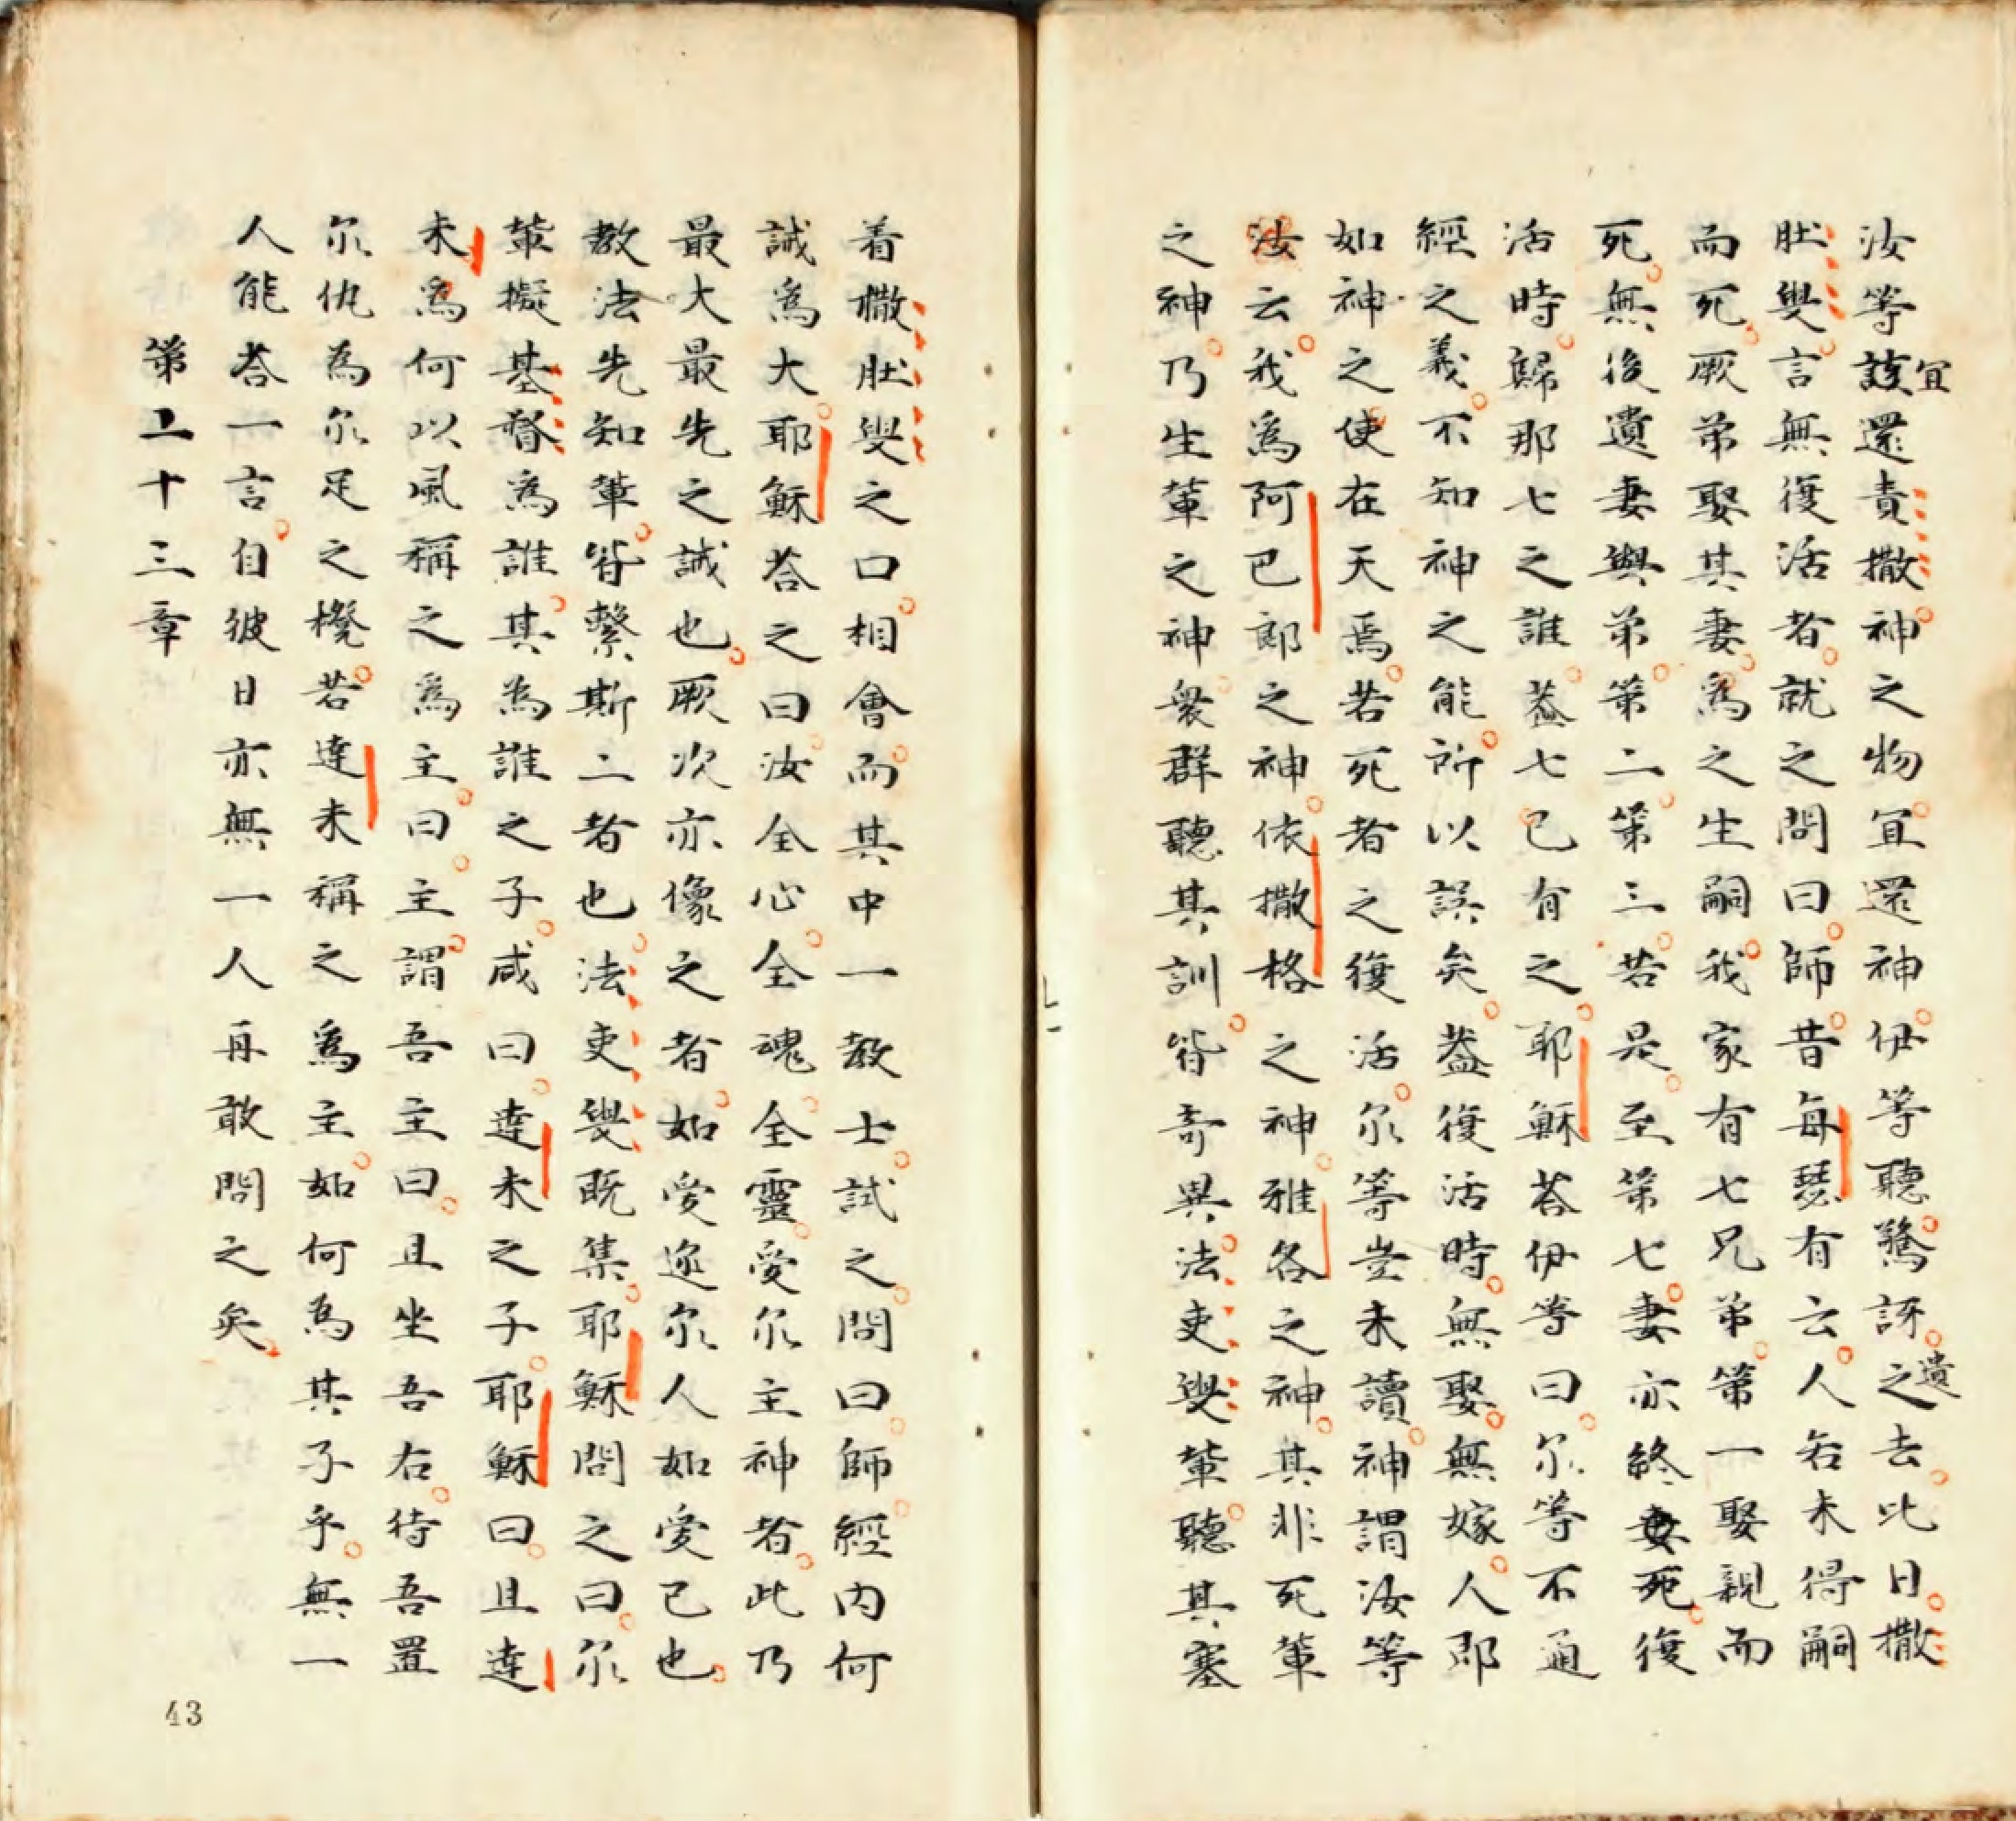 汝等該還責撒神之物宜還神伊等聽驚訝之去此日撒
宜
遺
肚叟言無復活者就之問曰師昔每瑟有云人若未得嗣
而死厥弟娶其妻為之生嗣我家有七兄弟第一娶親而
死無後遺妻與弟第二第三若是至第七妻亦終妻死復
活時歸那七之誰蓋七已有之耶穌荅伊等曰尔等不通
經之義不知神之能所以誤矣蓋復活時無娶無嫁人即
如神之使在天焉若死者之復活尔等豈未讀神謂汝等
汝云我為阿巴郎之神依撒格之神雅各之神其非死輩
之神乃生輩之神衆群聽其訓皆奇異法吏叟輩聽其塞
着撒肚叟之口相會而其中一教士試之問曰師經内何
誡為大耶穌荅之曰汝全心全魂全靈愛尔主神者此乃
最大最先之誡也厥次亦像之者如愛邇尔人如愛己也
教法先知輩皆繫斯二者也法吏叟既集耶穌問之曰尔
輩擬基督為誰其為誰之子咸曰達未之子耶穌曰且達
未為何以風稱之為主曰主謂吾主曰且坐吾右待吾置
尔仇為尔足之櫈若達未稱之為主如何為其子乎無一
人能荅一言自彼日亦無一人再敢問之矣
第二十三章
43